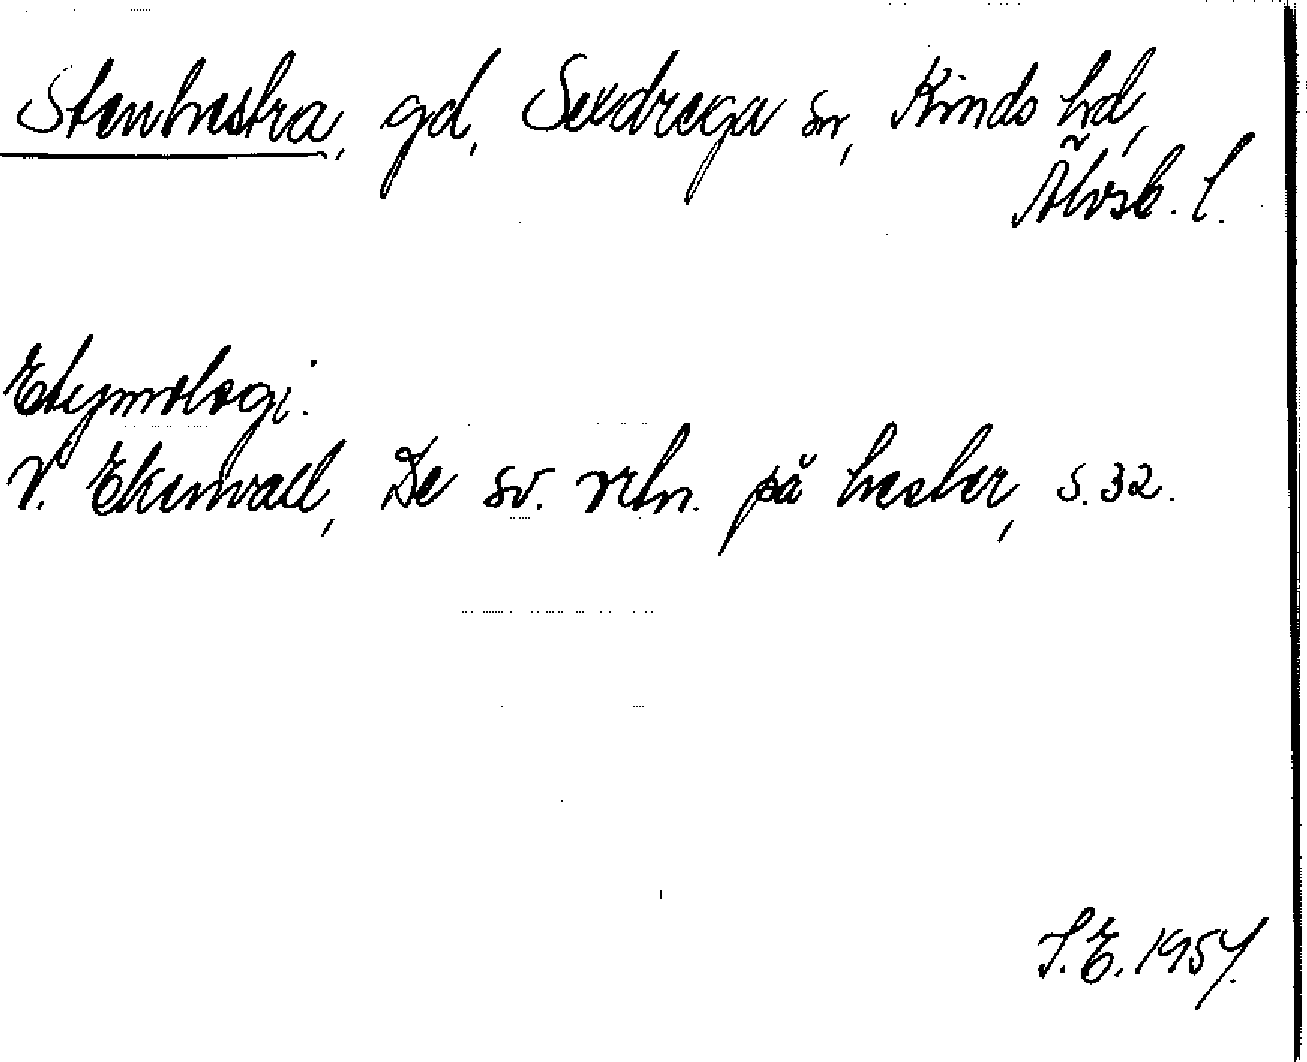 Stenhestra, gd, Sexdrega sn, Kinds hd,
Älvsb. l.
Etymologi.
V. Ekenvall, De sv. nrln. på hester, s. 32.
S.E. 1957.